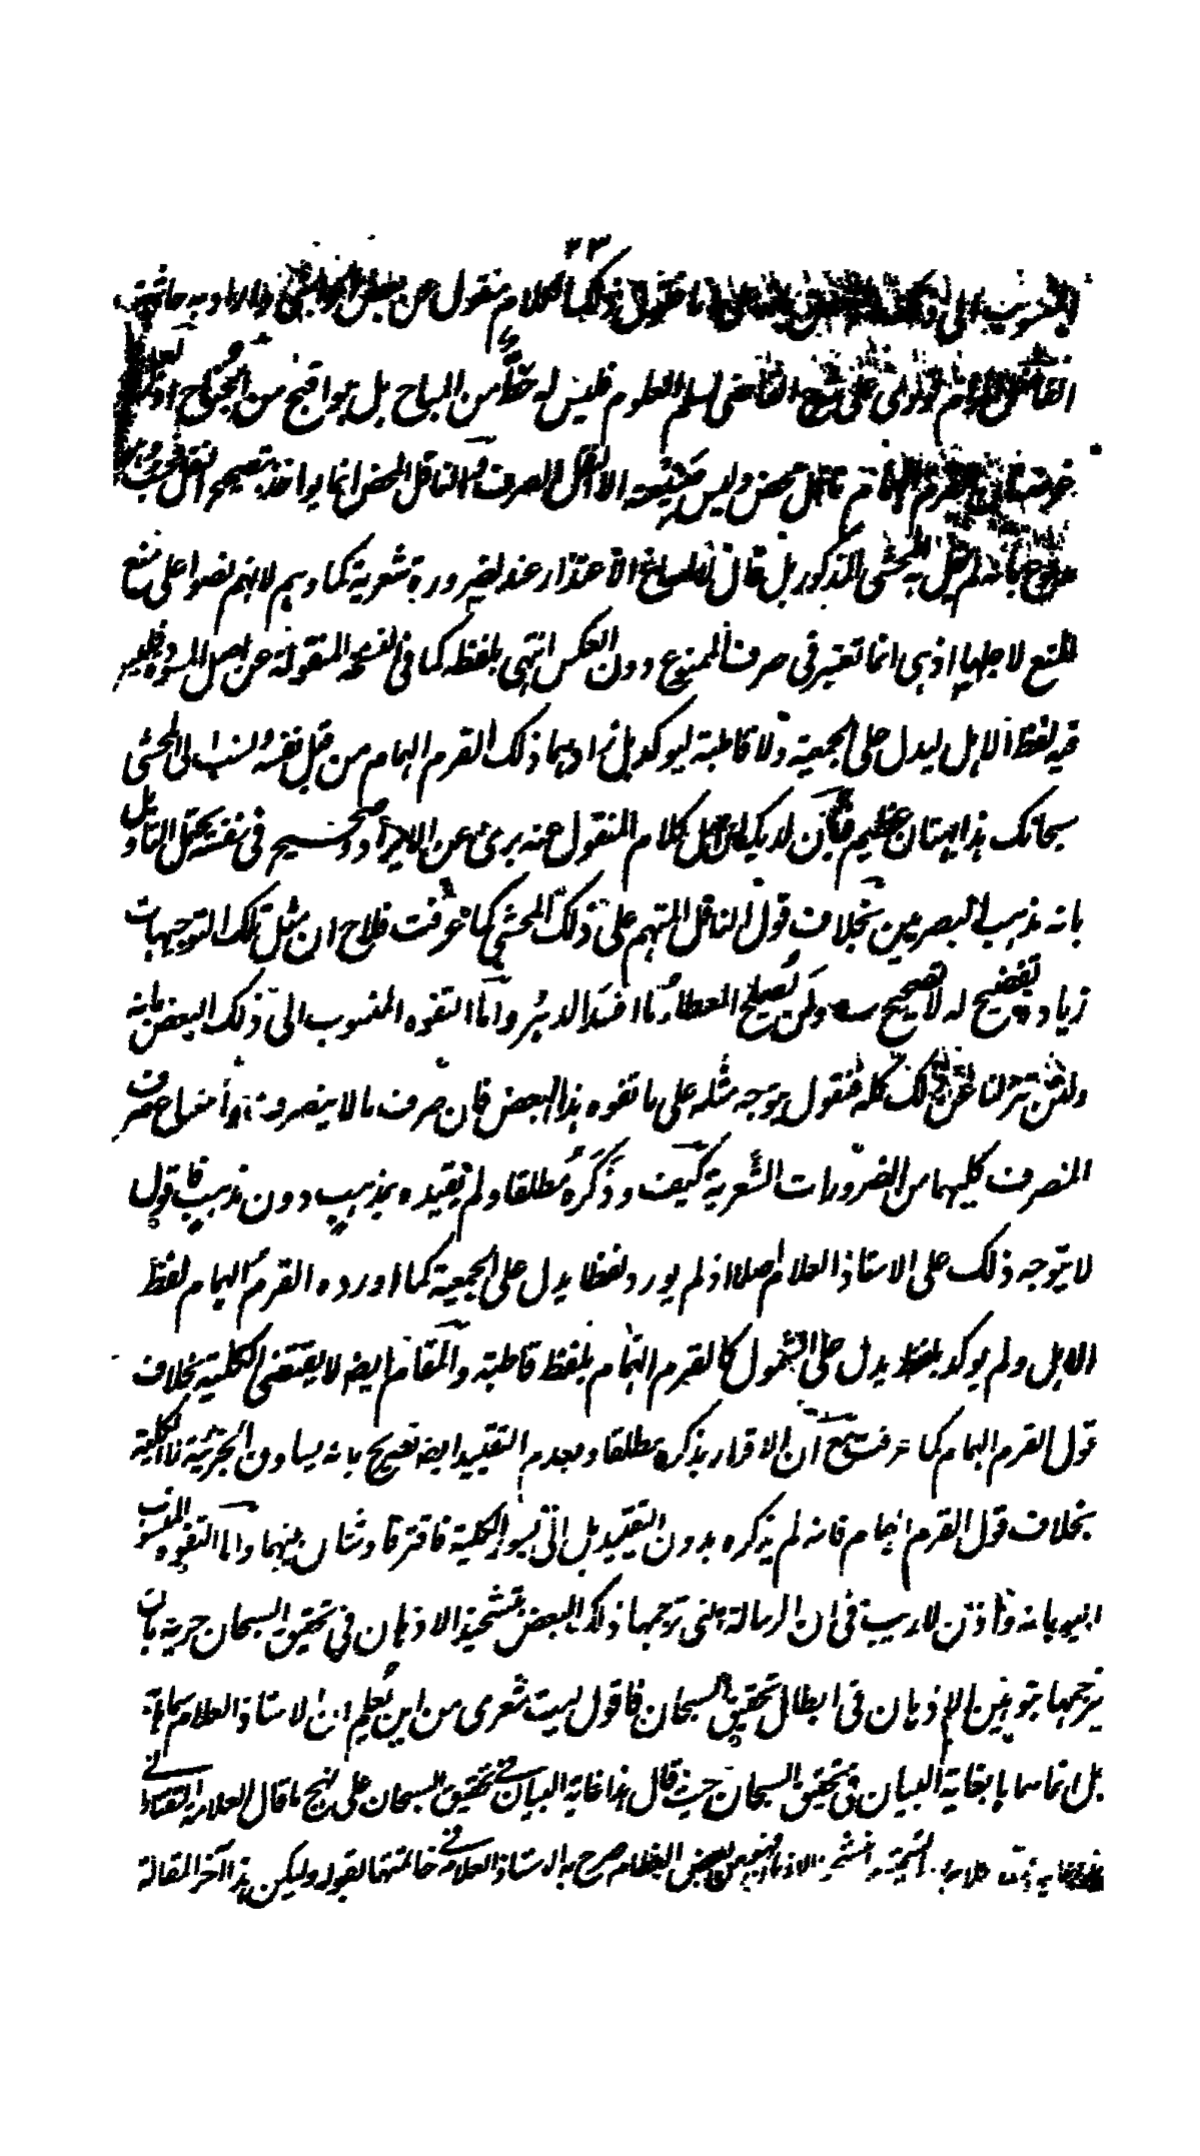 ٢٣
المنسوب الى ذلك ما نقول ذلك الكلام منقول عن بعض الحواشى والمراد به حاشية
الفاضل على شرح القاضى لسلم العلوم فليس له حظ من المباح بل هو اقبح من الجناح
القرم الهمام ناقل محض وليس حيثيته الا النقل الصرف والناقل المحض انما يواخذ بتصحيح النقل
بانه لم يقل به المحشى المذكور بل قال لا مساغ الاعتذار عند لضرورة شعرية كما وهم لانهم نصوا على منع
المنع لاجلها اذ هى انما تعتبر فى صرف الممنوع دون العكس انتهى بلفظه كما فى النسخة المنقولة عن اصل المسودة فليس
فيه لفظ الاهل ليدل على الجمعية ولا قاطبة ليوكد بل زادهما ذلك القرم الهمام من قبل نفسه ونسب الى المحشى
سبحانك هذا بهتان عظيم فبان لديك ان اصل كلام المنقول عنه برئ عن الايراد وصحيح فى نفسه يحتمل التاويل
بانه مذهب البصريين بخلاف قول الناقل المتهم على ذلك المحشى كما عرفت فلاح ان مثل تلك التوجيهات
زيادة تفضيح له لا تصحيح ولن يصلح العطار ما افسد الدهر واما التفوه المنسوب الى ذلك البعض بانه
ولئن تنزلنا عن ذلك كله فنقول يتوجه مثله على ما تفوه هذا البعض فان صرف ما لا ينصرف وامتناع صرف
المنصرف كليهما من الضرورات الشعرية كيف وذكره مطلقا ولم يقيده بمذهب دون مذهب فاقول
لا يتوجه ذلك على الاستاذ العلام اصلا اذ لم يورد لفظا يدل على الجمعية كما اورده القرم الهمام لفظ
الاهل ولم يوكد بلفظ يدل على الشمول كالقرم الهمام بلفظ قاطبة والمقام ايضا لا يقتضى الكلية بخلاف
قول القرم الهمام كما عرفت مع ان الاقرار بذكره مطلقا وبعدم التقييد ايضا تصريح بانه يساوق الجزئية لا الكلية
بخلاف قول القرم الهمام فانه لم يذكره بدون التقييد بل اتى بسور الكلية فافترقا وشتان بينهما واما التفوه المنسوب
اليه بانه لاريب فى ان الرسالة التى ترجمها ذلك البعض بتشحيذ الاذهان فى تحقيق السبحان حرية بان
يترجمها بتوهين الاذهان فى ابطال تحقيق السبحان فاقول ليت شعرى من اين يعلم ان الاستاذ العلام سماها به
بل انما سماها بغاية البيان فى تحقيق السبحان حيث قال هذا غاية البيان فى تحقيق السبحان على نهج ما قال العلامة التفتازانى
هذا غاية من بعض الطلبة صرح به الاستاذ العلام فى خاتمتها بقوله وليكن هذا آخر المقالة